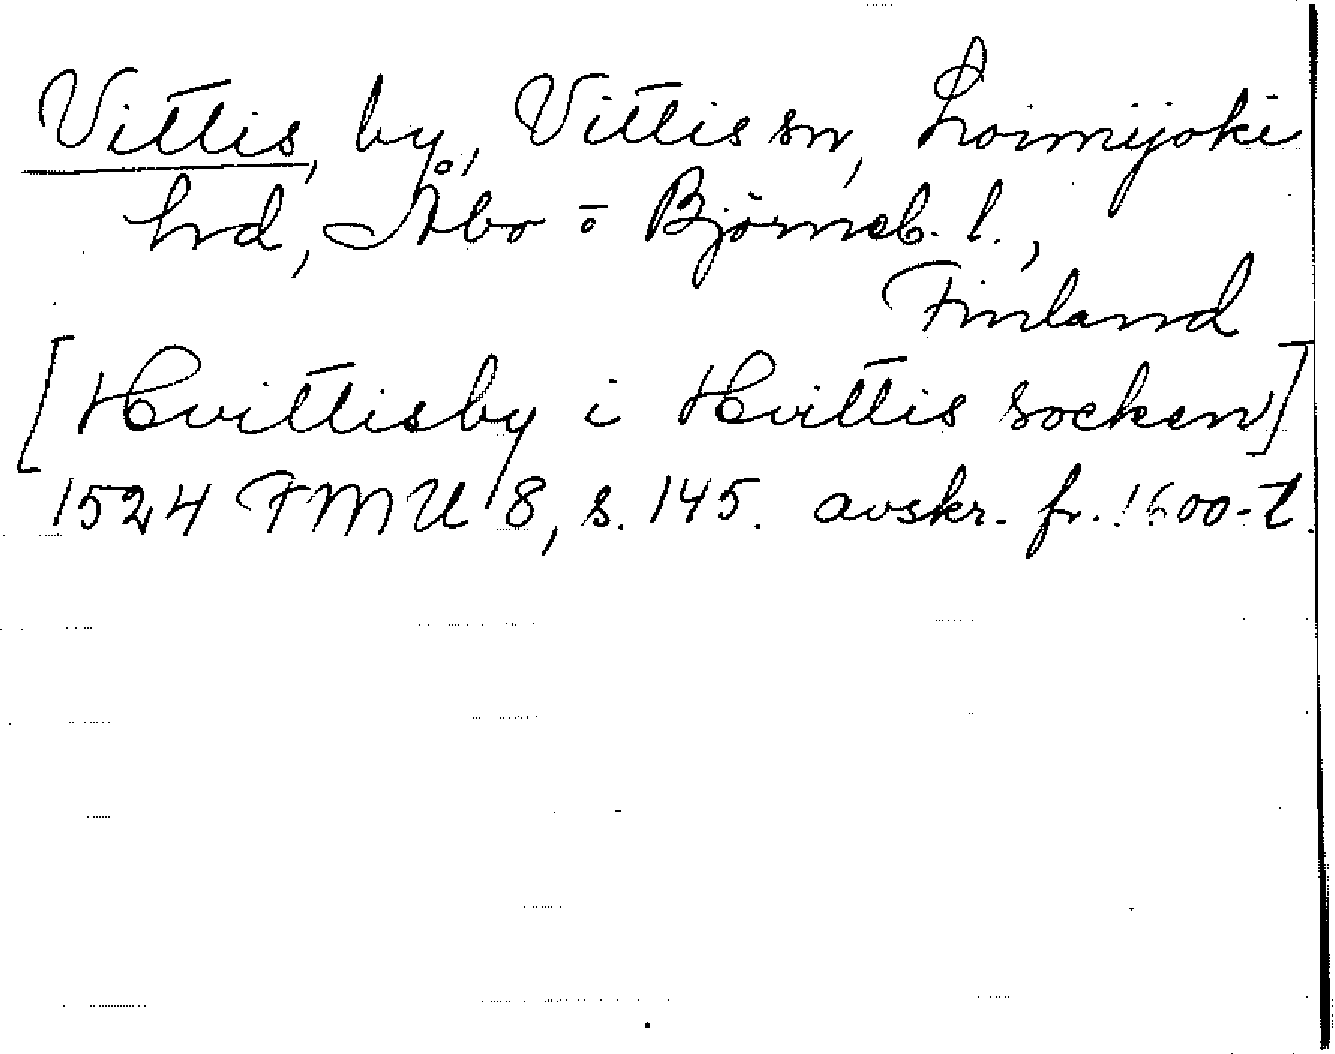 Vittis, by, Vittis sn, Loimijoki
hrd, Åbo o Björneb. l.,
Finland
[Hvittisby i Hvittis socken]
1524 FMU 8, s. 145. avskr. fr. 1600-t.